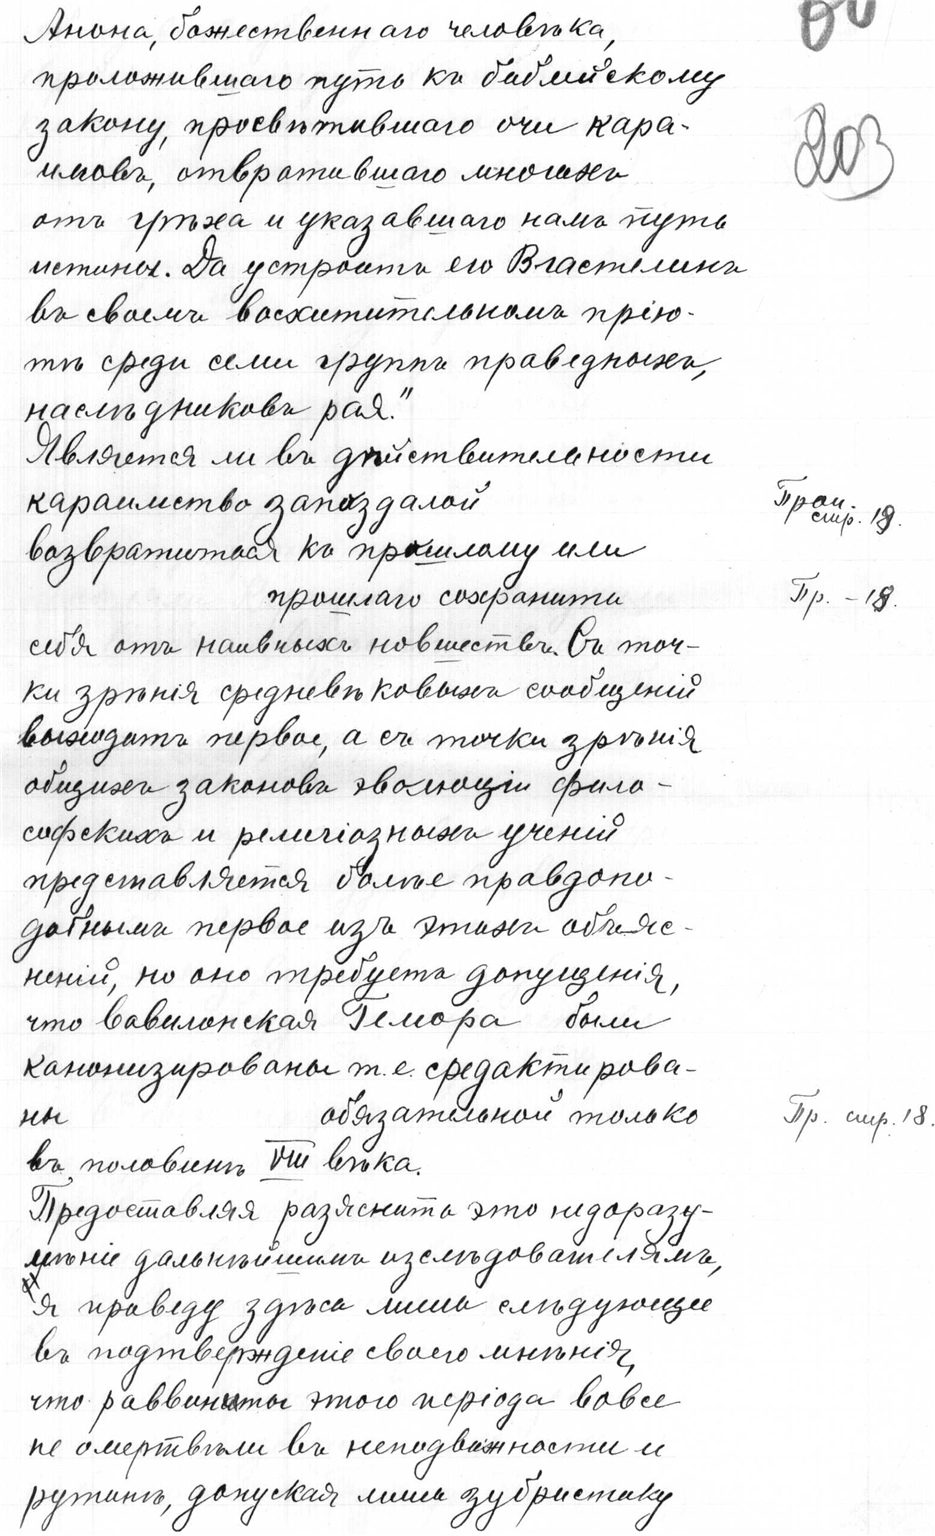 Анона, божественнаго человѣка,
проложившаго путь къ библейскому
закону, просвѣтившаго очи кара-
имовъ, отвратившаго многихъ
отъ грѣха и указавшаго намъ путь
истины. Да устроитъ его Властелинъ
въ своемъ восхитительномъ прiю-
тѣ среди семи группъ праведныхъ,
наслѣдниковъ рая."
Является ли въ дѣйствительности
караимство запоздалой
возвратиться къ прошлому или
прошлаго сохранить
себя отъ наивныхъ новшествъ. Съ точ-
ки зрѣнiя средневѣковыхъ сообщенiй
выходитъ первое, а съ точки зрѣнiя
общихъ законовъ эволюцiи фило-
софскихъ и религiозныхъ ученiй
представляется болѣе правдопо-
добнымъ первое изъ этихъ объяс-
ненiй, но оно требуетъ допущенiя,
что вавилонская Гемора были
канонизированы т.е. средактирова-
ны обязательной только
въ половинѣ VIII вѣка.
Предоставляя разяснить это недоразу-
мѣнiе дальнѣйшимъ изслѣдователямъ,
я приведу здѣсь лишь слѣдующее
въ подтвержденiе своего мнѣнiя,
что раввиниты этого перiода вовсе
не омертвѣли въ неподвижности и
рутинѣ, допуская лишь зубристику
203
Проп.
стр. 18.
Пр. - 18.
Пр. стр. 18.